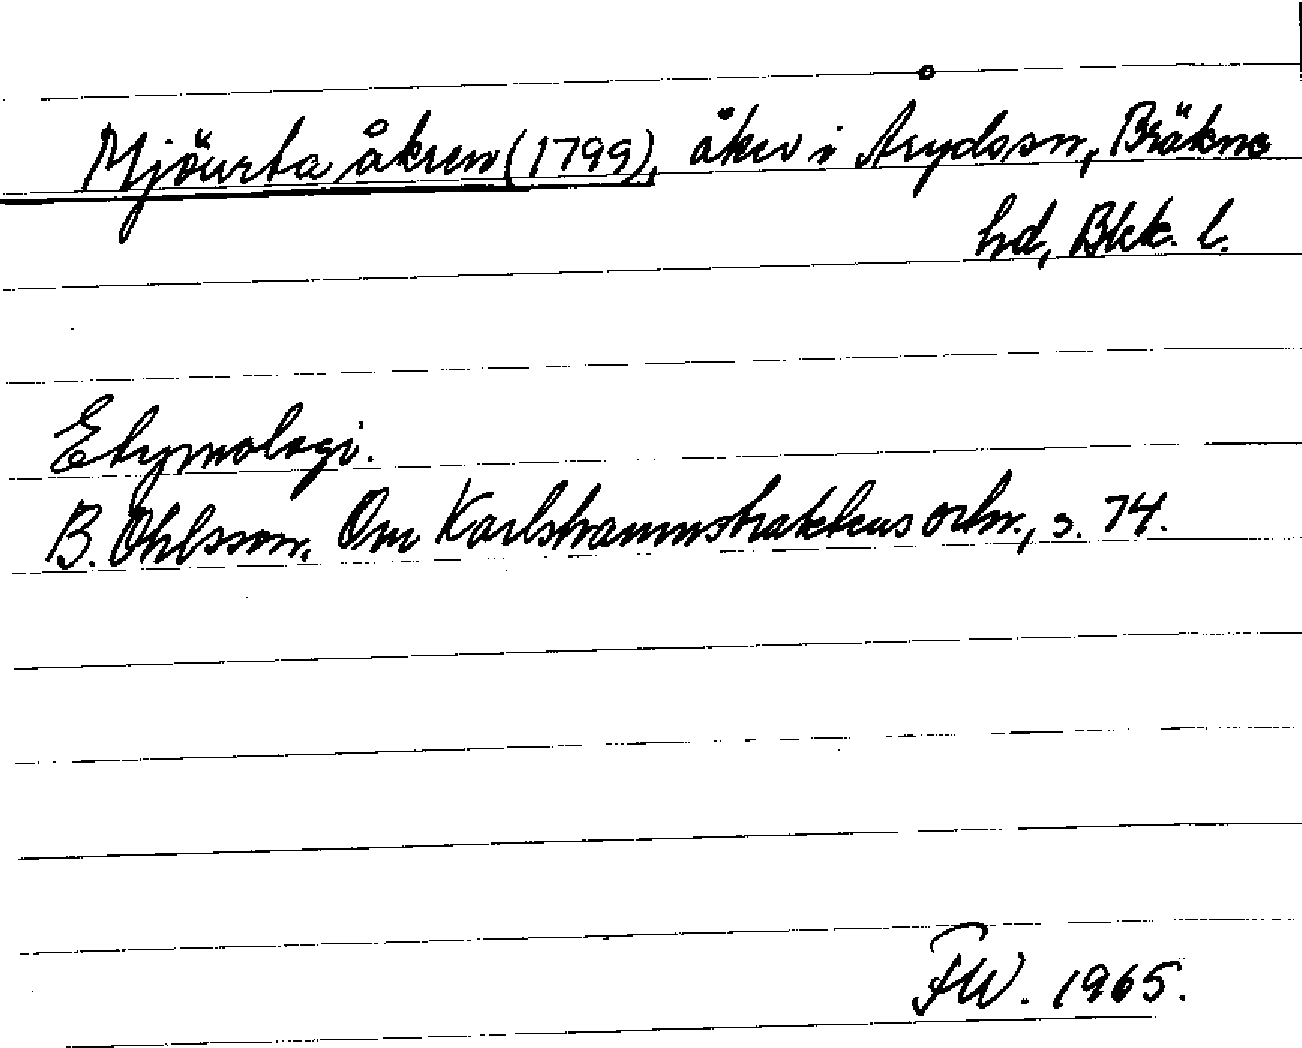 Mjöurta åkren (1799), åker i Åryds sn, Bräkne
hd, Blek. l.
Etymologi.
B. Ohlsson, Om Karlshamnstraktens ortn., s. 74.
FW. 1965.